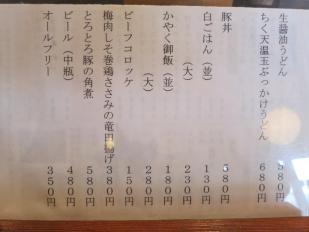 生醤油うどん 380円
ちく天温玉ぶっかけうどん 680円
豚丼 580円
白ごはん（並） 130円
（大） 230円
かやく御飯（並） 180円
（大） 280円
ビーフコロッケ 150円
梅肉しそ巻鶏ささみの竜田揚げ 380円
とろとろ豚の角煮 580円
ビール（中瓶） 480円
オールフリー 350円